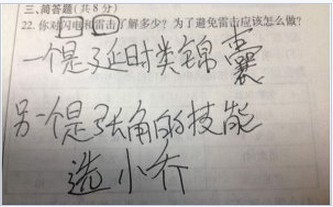 三.简答题(共8分)
22.你对闪电和雷击了解多少?为了避免雷击应该怎么做?
一个是延时类锦囊
另一个是张角的技能
选小乔